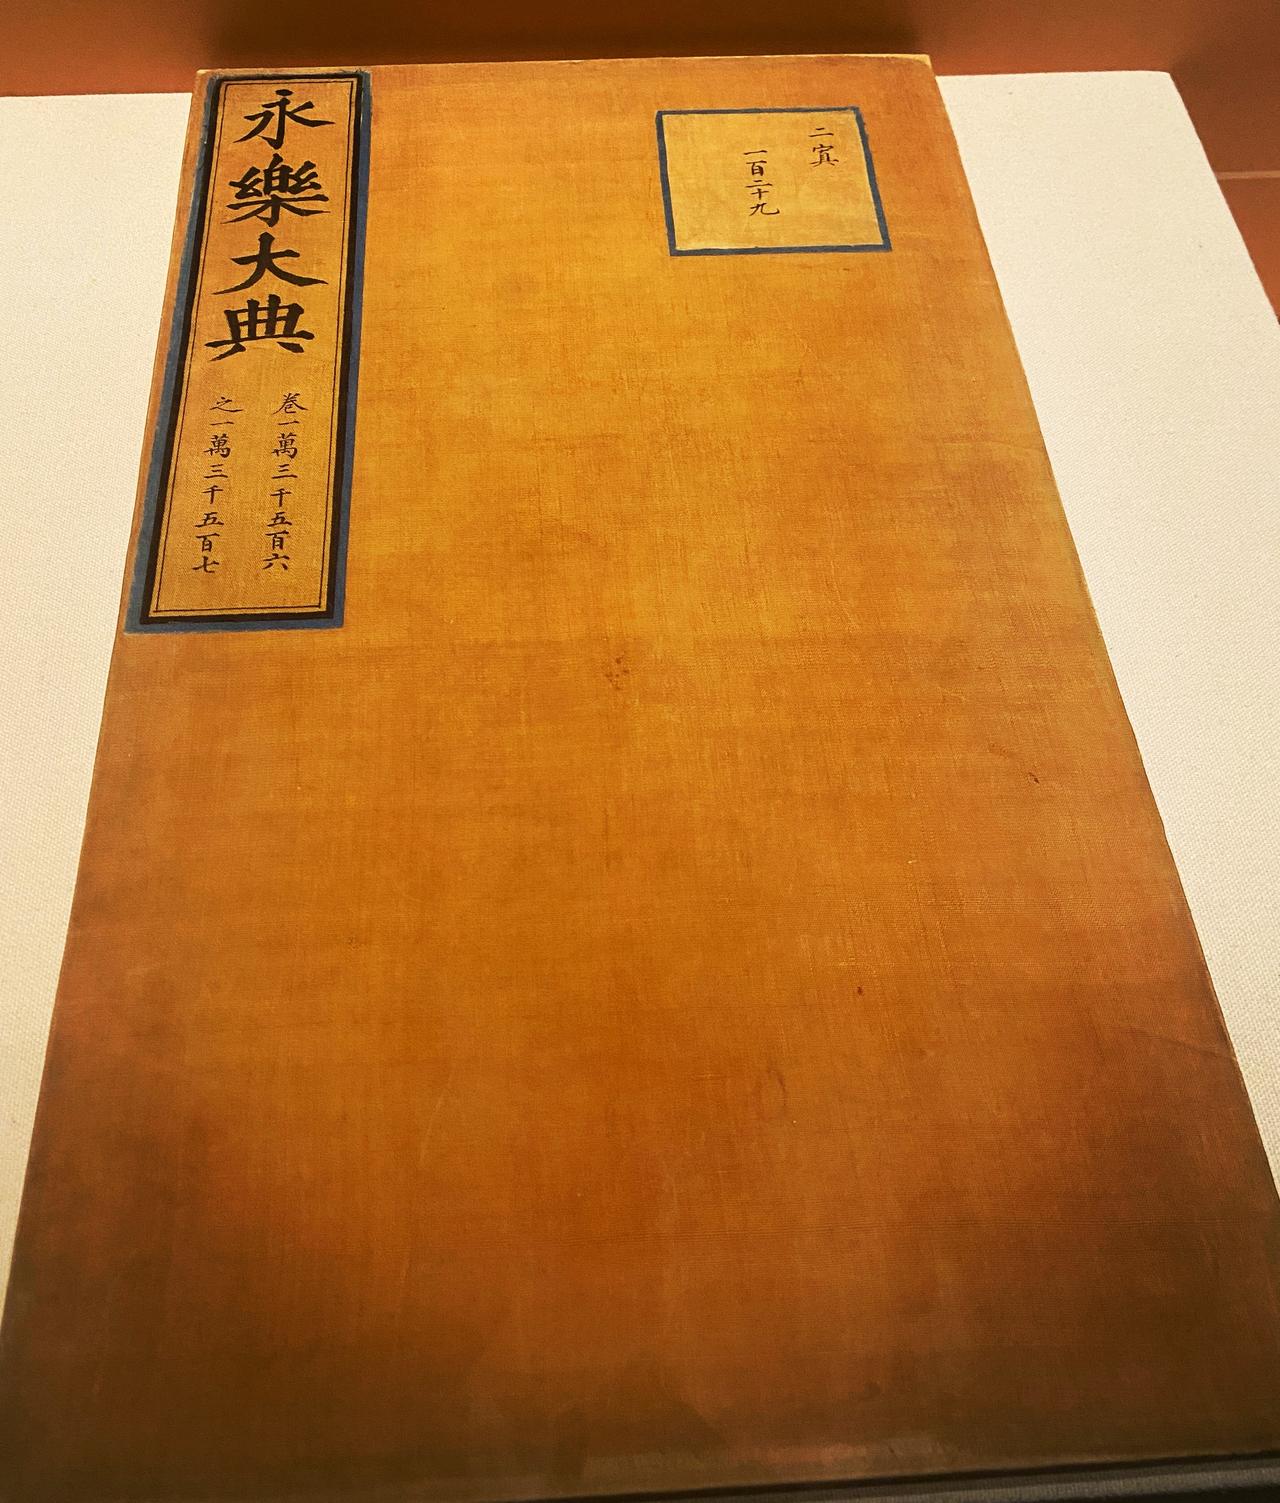 永樂大典
卷一萬三千五百六
之一萬三千五百七
二寘
一百二十九